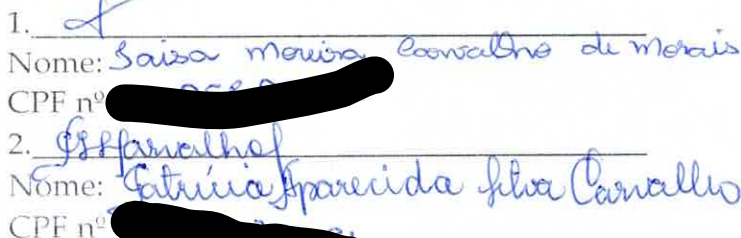 1.
Nome: Saisa Moreira Carvalho de Morais
CPF nº
2.
Nome: Patrícia Aparecida Silva Carvalho
CPF nº